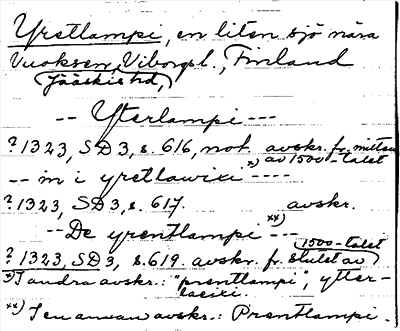 Yretlampi, en liten sjö nära
Vuoksen, Viborgsl., Finland
Jääskis hd,
-- Yterlampi ---
? 1323, SD 3, s. 616, not. avskr. fr. mitten
x) av 1500-talet
-- m i yretlawixi ----
? 1323, SD 3, s. 617. avskr.
-- De yrentlampi --- xx)
1500-talet
? 1323, SD 3, s. 619. avskr. fr. slutet av
x) I andra avskr.: "prentlampi", ytter-
lacixi.
xx) I en annan avskr.: Prentlampi.